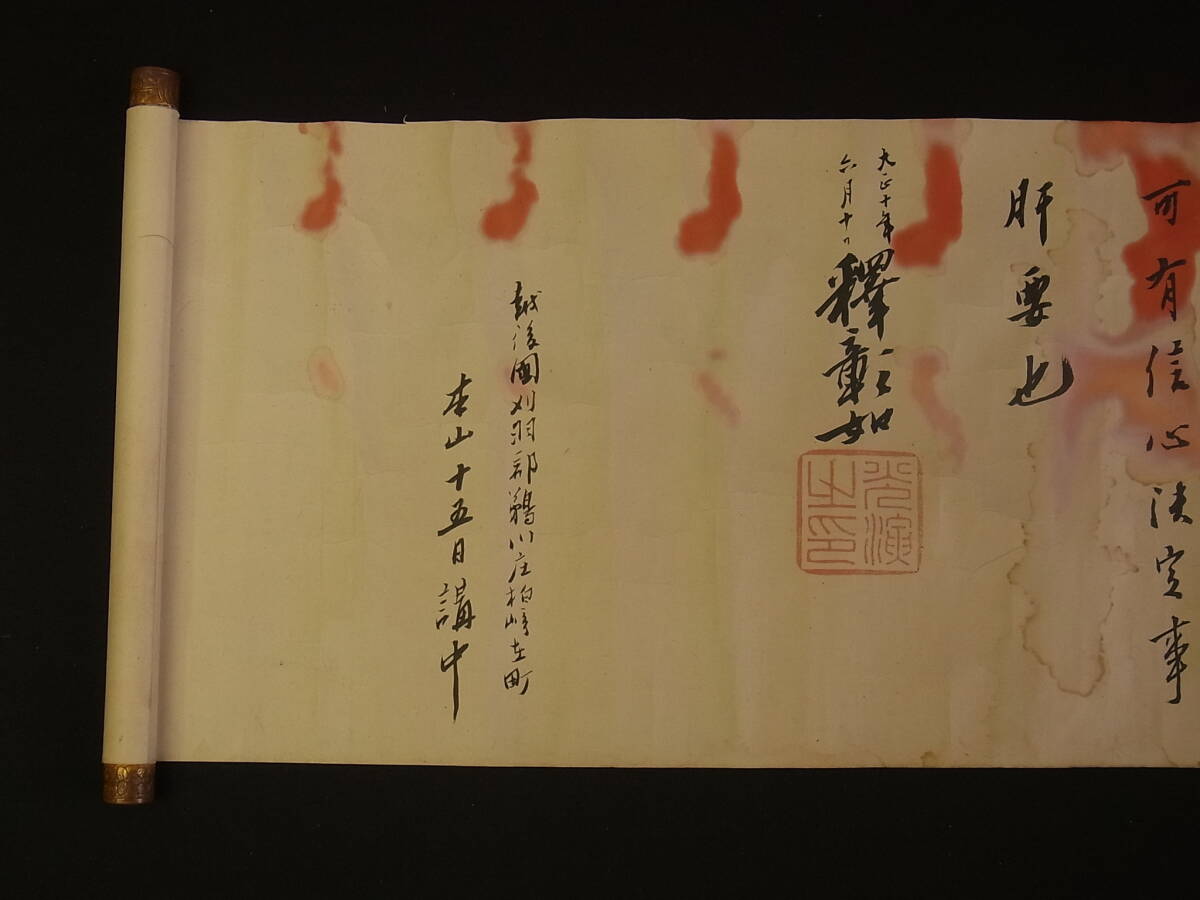 可有信心決定事
肝要也
大正十年
六月十日
釋彰如
光演之印
越後國刈羽郡鵜川庄柏崎在町
本山十五日講中